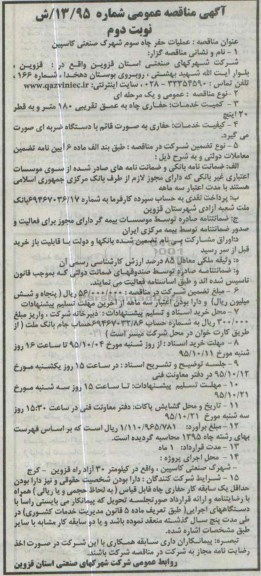 آگهی مناقصه عمومی شماره ۱۳/۹۵/ش
نوبت دوم
عنوان مناقصه : عملیات حفر چاه سوم شهرک صنعتی کاسپین
۱ - نام و نشانی مناقصه گزار:
شرکت شهرکهای صنعتی استان قزوین واقع در : قزوین ،
بلوار آیت الله شهید بهشتی ، روبروی بوستان دهخدا ، شماره ۱۶۶ ،
تلفن تماس : ۳۳۳۵۴۵۹۰ - ۰۲۸ ، سایت اینترنتی: www.qazviniec.ir
۲ - نوع مناقصه : عمومی و یک مرحله ای
۳ - کمیت خدمات: حفاری چاه به عمق تقریبی ۱۸۰ متر و به قطر
۲۰ اینچ
۴ - کیفیت خدمات: حفاری به صورت قائم با دستگاه ضربه ای صورت
می گیرد.
۵ - نوع تضمین شرکت در مناقصه : طبق بند الف ماده ۶ آیین نامه تضمین
معاملات دولتی و به شرح ذیل :
الف: ضمانت نامه بانکی و ضمانت نامه های صادر شده از سوی موسسات
اعتباری غیر بانکی که دارای مجوز لازم از طرف بانک مرکزی جمهوری اسلامی
هستند با مدت اعتبار سه ماهه
ب: پرداخت نقدی به حساب سپرده کارفرما به شماره بانک
ملت شعبه آزادی شهرستان قزوین
ج: ضمانتنامه صادره توسط موسسات بیمه گر دارای مجوز برای فعالیت و
صدور ضمانتنامه توسط بیمه مرکزی ایران
د: اوراق مشارکت بی نام تضمین شده بانکها و دولت با قابلیت باز خرید
قبل از سر رسید
ه: وثیقه ملکی معادل ۸۵ درصد ارزش کارشناسی رسمی آن
و: ضمانتنامه صادره توسط صندوقهای ضمانت دولتی که بموجب قانون
تاسیس شده اند و طبق اساسنامه فعالیت می نمایند.
۶ - مبلغ تضمین شرکت در مناقصه : ۵۶/۰۰۰/۰۰۰ ریال ( پنجاه و شش
میلیون ریال) و دارا بودن اعتبار سه ماهه از آخرین مهلت تسلیم پیشنهادات
۷ - محل خرید اسناد و تسلیم پیشنهادات : دبیرخانه شرکت ، واریز مبلغ
ریال به شماره حساب جام بانک ملت ( از
طریق کارت خوان در محل شرکت میسر است )
۸ - مهلت خرید اسناد : از روز شنبه مورخ ۹۵/۱۰/۰۴ تا ساعت ۱۶ روز
شنبه مورخ ۹۵/۱۰/۱۱
۹ - جلسه توضیح و تشریح اسناد : در ساعت ۱۵ روز یکشنبه مورخ
۹۵/۱۰/۱۲ در دفتر معاونت فنی
۱۰ - مهلت تسلیم پیشنهادات: تا ساعت ۱۵ روز سه شنبه مورخ
۹۵/۱۰/۲۱
۱۱ - تاریخ و محل گشایش پاکات: دفتر معاونت فنی در ساعت ۱۵:۳۰ روز
سه شنبه مورخ ۹۵/۱۰/۲۱
۱۲ - مبلغ برآورد: ۱/۱۱۰/۹۶۵/۷۸۱ ریال است که بر اساس فهرست
بهای رشته چاه ۱۳۹۵ محاسبه گردیده است.
۱۳ - مدت قرارداد: ۱ ماه
۱۴ - محل اجرای پروژه :
- شهرک صنعتی کاسپین ، واقع در کیلومتر ۳۰ آزاد راه قزوین - کرج
۱۵ - شرایط شرکت کنندگان : دارا بودن شخصیت حقوقی و نیز دارا بودن
حداقل یک سابقه کار حفاری چاه قابل قیاس ( به لحاظ حجمی و یا ریالی ) همراه
با رضایتنامه و ارائه قرارداد صورتجلسه تحویل که پیمانکار می بایستی راسا با
دستگاههای اجرایی( طبق تعریف ماده ۵ قانون مدیریت خدمات کشوری) در
طی مدت پنج سال گذشته منعقد نموده باشد و یا دو سابقه کار مشابه با سایر
طبق مشخصات اشاره شده.
تبصره: پیمانکاران دارای سابقه همکاری با این شرکت در صورت اخذ
رضایت نامه مجاز به شرکت در مناقصه شرکت باشند.
روابط عمومی شرکت شهرکهای صنعتی استان قزوین